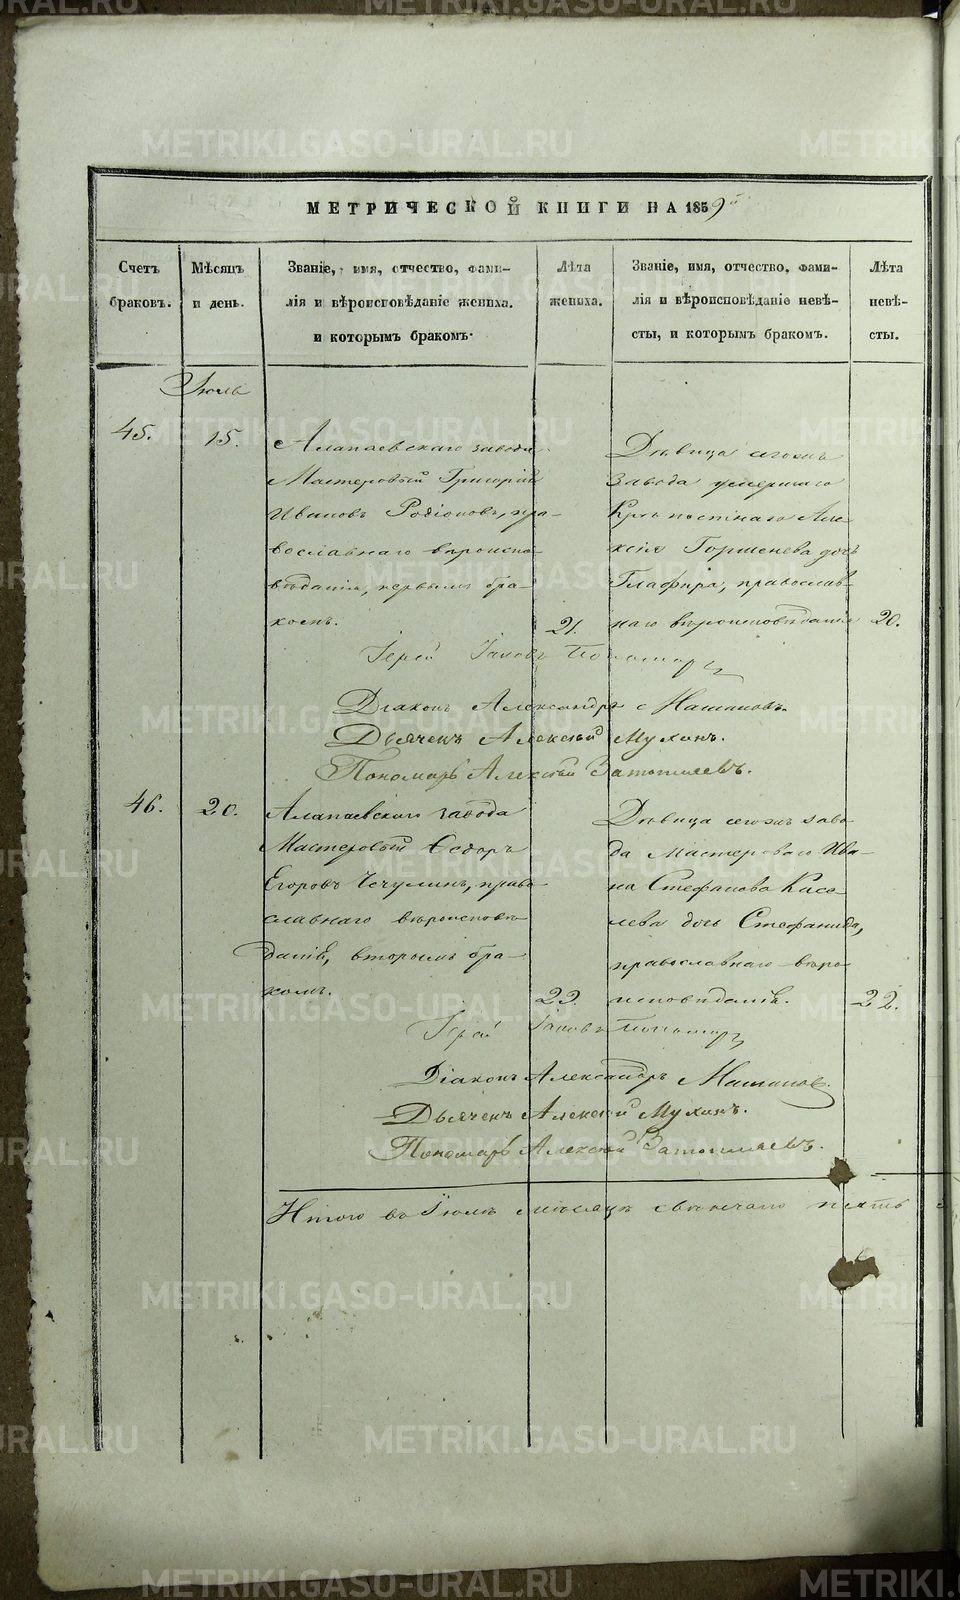 МЕТРИЧЕСКОЙ КНИГИ НА 1859й
Счетъ браковъ.
Мѣсяцъ и день.
Званіе, имя, отчество, фами-
лія и вѣроисповѣданіе жениха.
и которымъ бракомъ.
Лѣта жениха.
Званіе, имя, отчество, фами-
лія и вѣроисповѣданіе невѣ-
сты, и которымъ бракомъ.
Лѣта невѣ-
сты.
Іюль
45.
15.
Алапаевскаго завода
Мастеровый Григорій
Ивановъ Родіоновъ, пра-
вославнаго вѣроиспо-
вѣданія, первымъ бра-
комъ.
21.
Дѣвица тогожъ
завода умершаго
Крѣпостнаго Але-
ксія Горшенева дочь
Глафира, православ-
наго вѣроисповѣданія
20.
Іерей Іаковъ
Діаконъ Александръ
Дьячекъ Алексій Мухинъ.
Пономарь Алексій
46.
20.
Алапаевскаго завода
Мастеровый Ѳедоръ
Егоровъ Чечулинъ, право-
славнаго вѣроисповѣ-
данія, вторымъ бра-
комъ.
22.
Дѣвица тогожъ заво-
да Мастероваго Ива-
на Стефанова Кисе-
лева дочь Стефанида,
православнаго вѣро-
исповѣданія.
22.
Іерей Іаковъ
Діаконъ Александръ
Дьячекъ Алексій Мухинъ.
Пономарь Алексій
Итого въ Іюлѣ мѣсяцѣ свѣнчано пять
METRIKI.GASO-URAL.RU